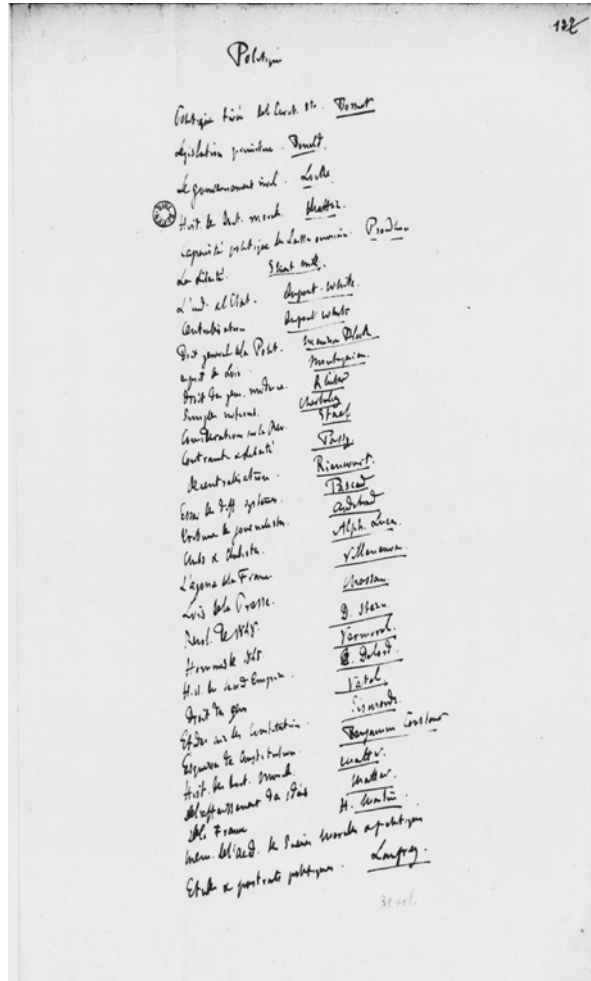 132
Politique
Politique tirée de l'Ecrit. Ste. Bossuet
Législation primitive. Bonald.
Le gouvernement civil. Locke
Hist. des Doct. morales. Matter.
Capacité politique des classes ouvrières. Proudhon
La liberté. Stuart Mill.
L'ind. et l'Etat. Dupont-White.
Centralisation Dupont White
Dict. général de la Polit. Maurice Block
Esprit des Lois. Montesquieu.
Droit des gens moderne. Klüber
Simples notions. Cherbuliez
Considérations sur la Rev. Staël
Contrainte & liberté Passy
Décentralisation. Riencourt.
Essai des diff. systèmes. Pascal
Tribune des journalistes. Audebrand
Clubs & clubistes. Alph. Lucas.
L'agonie de la France Villeneuve
Lois de la Presse. Chassan.
Revol. de 1848. D. Stern.
Hommes de 1848. Vermorel.
Hist. du second Empire. Delord.
Droit des gens Vatel.
Etudes sur les Constitutions. Sismondi.
Esquisse de Constitution. Benjamin Constant
Hist. des doct. morales. Matter.
De l'affaissement des idées Matter.
De la France H. Martin.
Mem. de l'Acad. des Sciences Morales & politiques
Etudes & portraits politiques. Lanfrey.
31 vol.